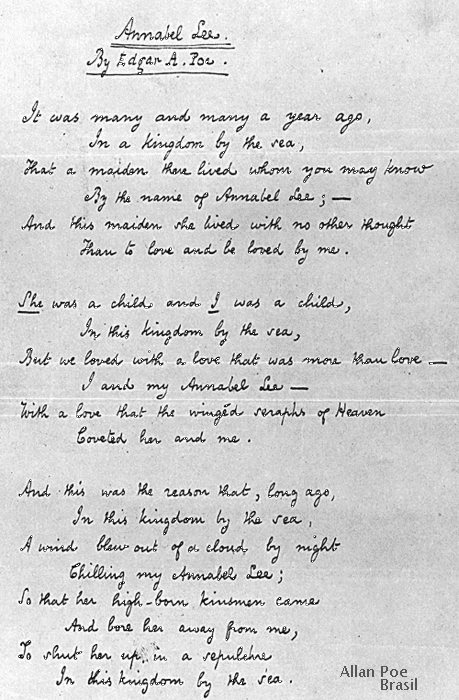 Annabel Lee.
By Edgar A. Poe.
It was many and many a year ago,
In a kingdom by the sea,
That a maiden there lived whom you may know
By the name of Annabel Lee; —
And this maiden she lived with no other thought
Than to love and be loved by me.
She was a child and I was a child,
In this kingdom by the sea,
But we loved with a love that was more than love —
I and my Annabel Lee —
With a love that the wingéd seraphs of Heaven
Coveted her and me.
And this was the reason that, long ago,
In this kingdom by the sea,
A wind blew out of a cloud by night
Chilling my Annabel Lee;
So that her high-born kinsmen came
And bore her away from me,
To shut her up in a sepulchre
In this kingdom by the sea.
Allan Poe
Brasil